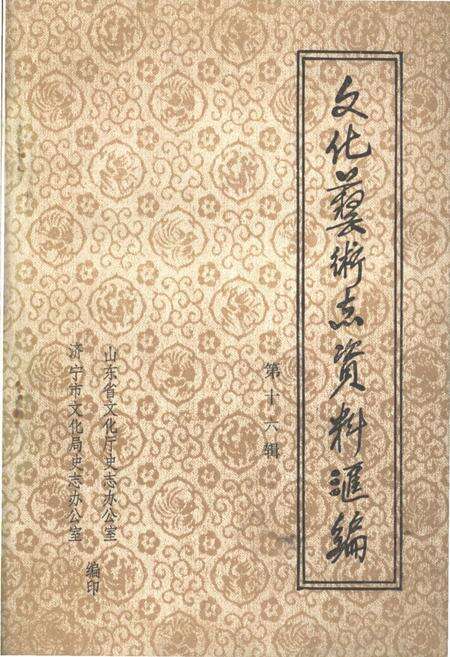 文化藝術志資料匯編
第十六辑
山东省文化厅史志办公室
济宁市文化局史志办公室
编印